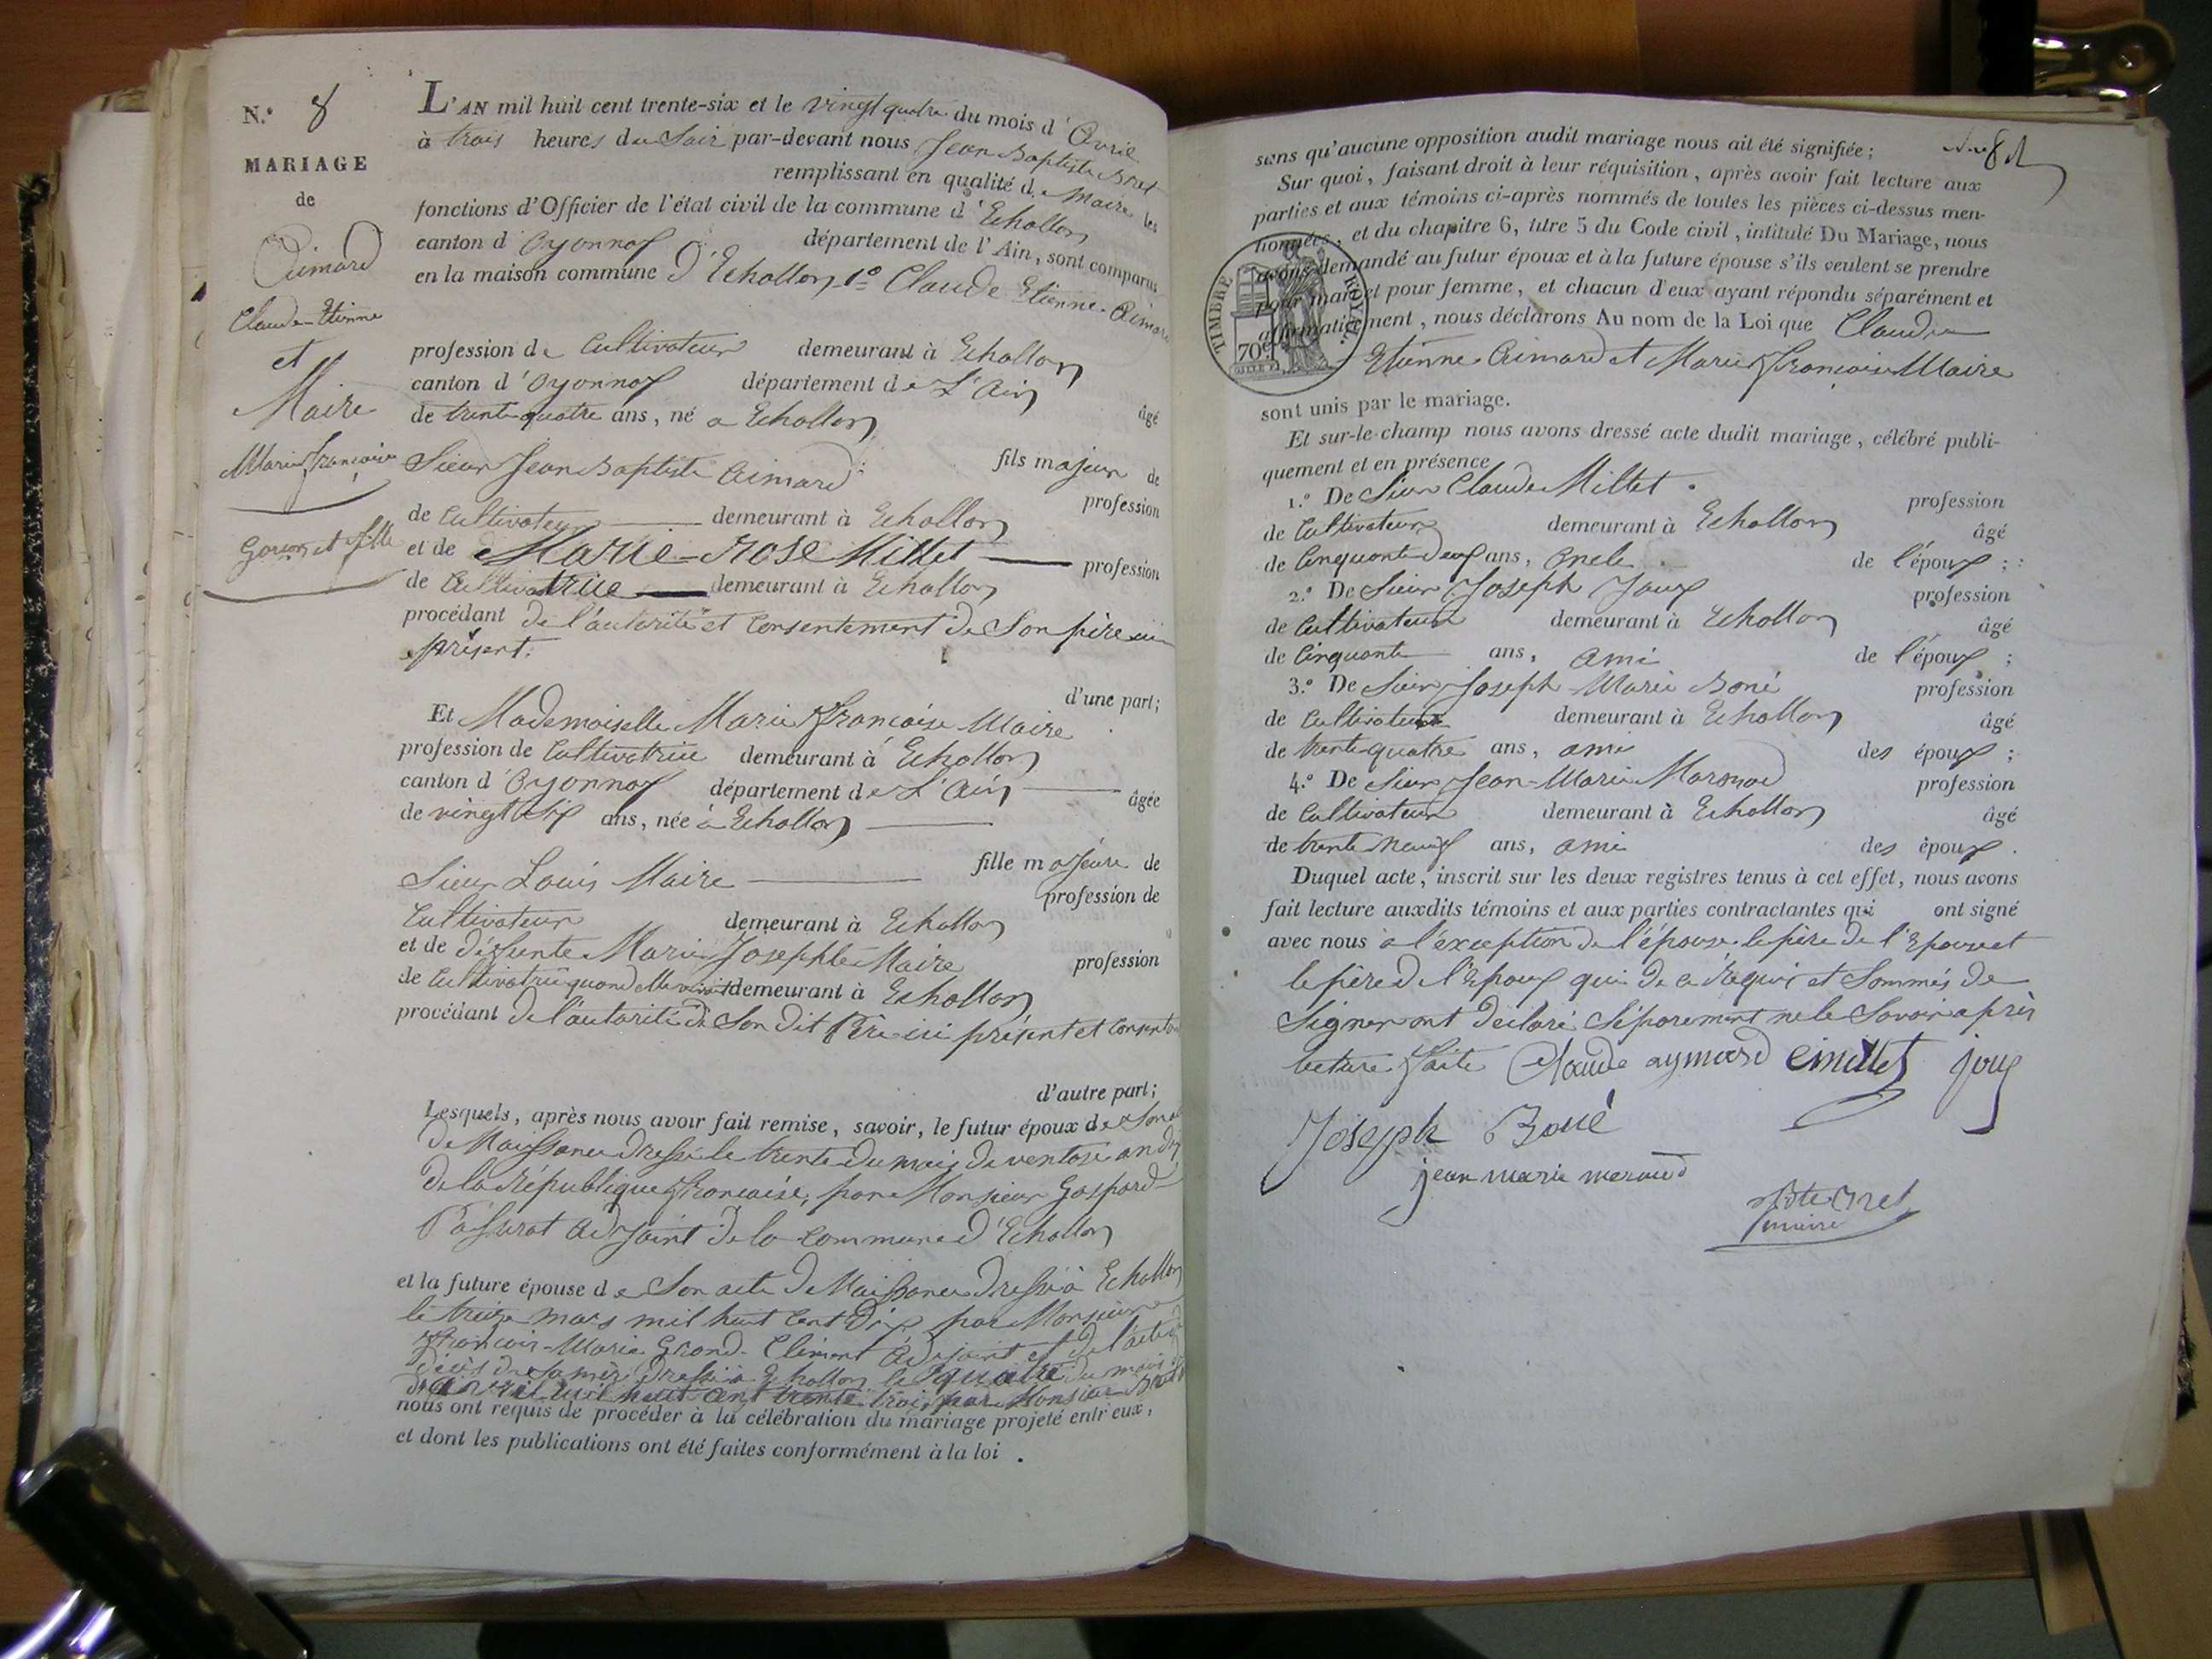 N.° 8
MARIAGE
de
Aimard
Claude-Etienne
et
Maire
Marie françoise
Garçon et fille
L'AN mil huit cent trente-six et le vingt quatre du mois d'Avril
à trois heures du Soir par-devant nous Jean Baptiste Bret
remplissant en qualité de Maire les
fonctions d'Officier de l'état civil de la commune d'Echallon
canton d'Oyonnax département de l'Ain, sont comparus
en la maison commune d'Echallon, 1° Claude Etienne Aimard
profession de Cultivateur demeurant à Echallon
canton d'Oyonnax département de L'Ain
âgé
de trente quatre ans, né a Echallon
fils majeur de
Sieur Jean Baptiste Aimard
profession
de Cultivateur demeurant à Echallon
et de Marie-Rose Millet profession
de Cultivatrice demeurant à Echallon
procédant de l'autorité et consentement de Son père ici
présent.
d'une part;
Et Mademoiselle Marie françoise Maire
profession de Cultivatrice demeurant à Echallon
canton d'Oyonnax département de L'Ain âgée
de vingt six ans, née à Echallon
fille majeure de
Sieur Louis Maire
profession de
Cultivateur demeurant à Echallon
et de défunte Marie Josephte Maire profession
de Cultivatrice quand elle vivait demeurant à Echallon
procédant de l'autorité de Son dit Père ici présent et Consentant
d'autre part;
Lesquels, après nous avoir fait remise, savoir, le futur époux de Son
de Naissance dressé le trente du mois de ventose an dix
de la République françoise, par Monsieur Gaspard
Passerat adjoint de la commune d'Echallon
et la future épouse de Son acte de Naissance dressé à Echallon
le treize mars mil huit cent dix par Monsieur
françois-Marie Grand-Clément adjoint et de l'acte
décès de Sa mère dressé à Echallon le quatre du mois
d'avril mil huit cent trente trois par Monsieur Bret
nous ont requis de procéder à la célébration du mariage projeté entr'eux,
et dont les publications ont été faites conformément à la loi.
sans qu'aucune opposition audit mariage nous ait été signifiée;
Sur quoi, faisant droit à leur réquisition, après avoir fait lecture aux
parties et aux témoins ci-après nommés de toutes les pièces ci-dessus men-
tionnées, et du chapitre 6, titre 5 du Code civil, intitulé Du Mariage, nous
avons demandé au futur époux et à la future épouse s'ils veulent se prendre
pour mari et pour femme, et chacun d'eux ayant répondu séparément et
affirmativement, nous déclarons Au nom de la Loi que Claude
Etienne Aimard et Marie françoise Maire
TIMBRE ROYAL.
70c
sont unis par le mariage.
Et sur-le-champ nous avons dressé acte dudit mariage, célébré publi-
quement et en présence
1.° De Sieur Claude Millet
profession
de Cultivateur demeurant à Echallon âgé
de Cinquante deux ans, oncle de l'époux;
2.° De Sieur Joseph Joux
profession
de Cultivateur demeurant à Echallon âgé
de Cinquante ans, ami de l'époux;
3.° De Sieur Joseph Marie Boné profession
de Cultivateur demeurant à Echallon âgé
de trente quatre ans, ami des époux;
4.° De Sieur Jean-Marie Marmod profession
de Cultivateur demeurant à Echallon âgé
de trente neuf ans, ami des époux.
Duquel acte, inscrit sur les deux registres tenus à cet effet, nous avons
fait lecture auxdits témoins et aux parties contractantes qui ont signé
avec nous à l'exception de l'épouse le père de l'Epouse et
le père de l'Epoux qui de ce requis et Sommés de
Signer ont déclaré Séparement ne le Savoir après
lecture faite Claude aymard C millet joux
Joseph Boné
jean marie
Bte Bret
maire